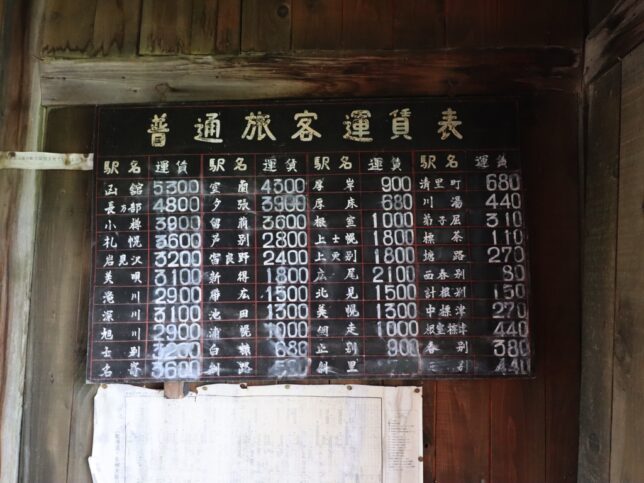 普通旅客運賃表
駅名 運賃 駅名 運賃 駅名 運賃 駅名 運賃
函館 5300 室蘭 4300 厚岸 900 清里町 680
長万部 4800 夕張 3900 厚床 680 川湯 440
小樽 3900 留萌 3600 根室 1000 弟子屈 310
札幌 3600 芦別 2800 上士幌 1800 標茶 110
岩見沢 3200 富良野 2400 上更別 1800 塘路 270
美唄 3100 新得 1800 広尾 2100 西春別 80
滝川 2900 帯広 1500 北見 1500 計根別 150
深川 3100 池田 1300 美幌 1300 中標津 270
旭川 2900 浦幌 1000 網走 1000 根室標津 440
士別 3200 白糠 680 止別 900 春別 380
名寄 3600 釧路 斜里 別 440